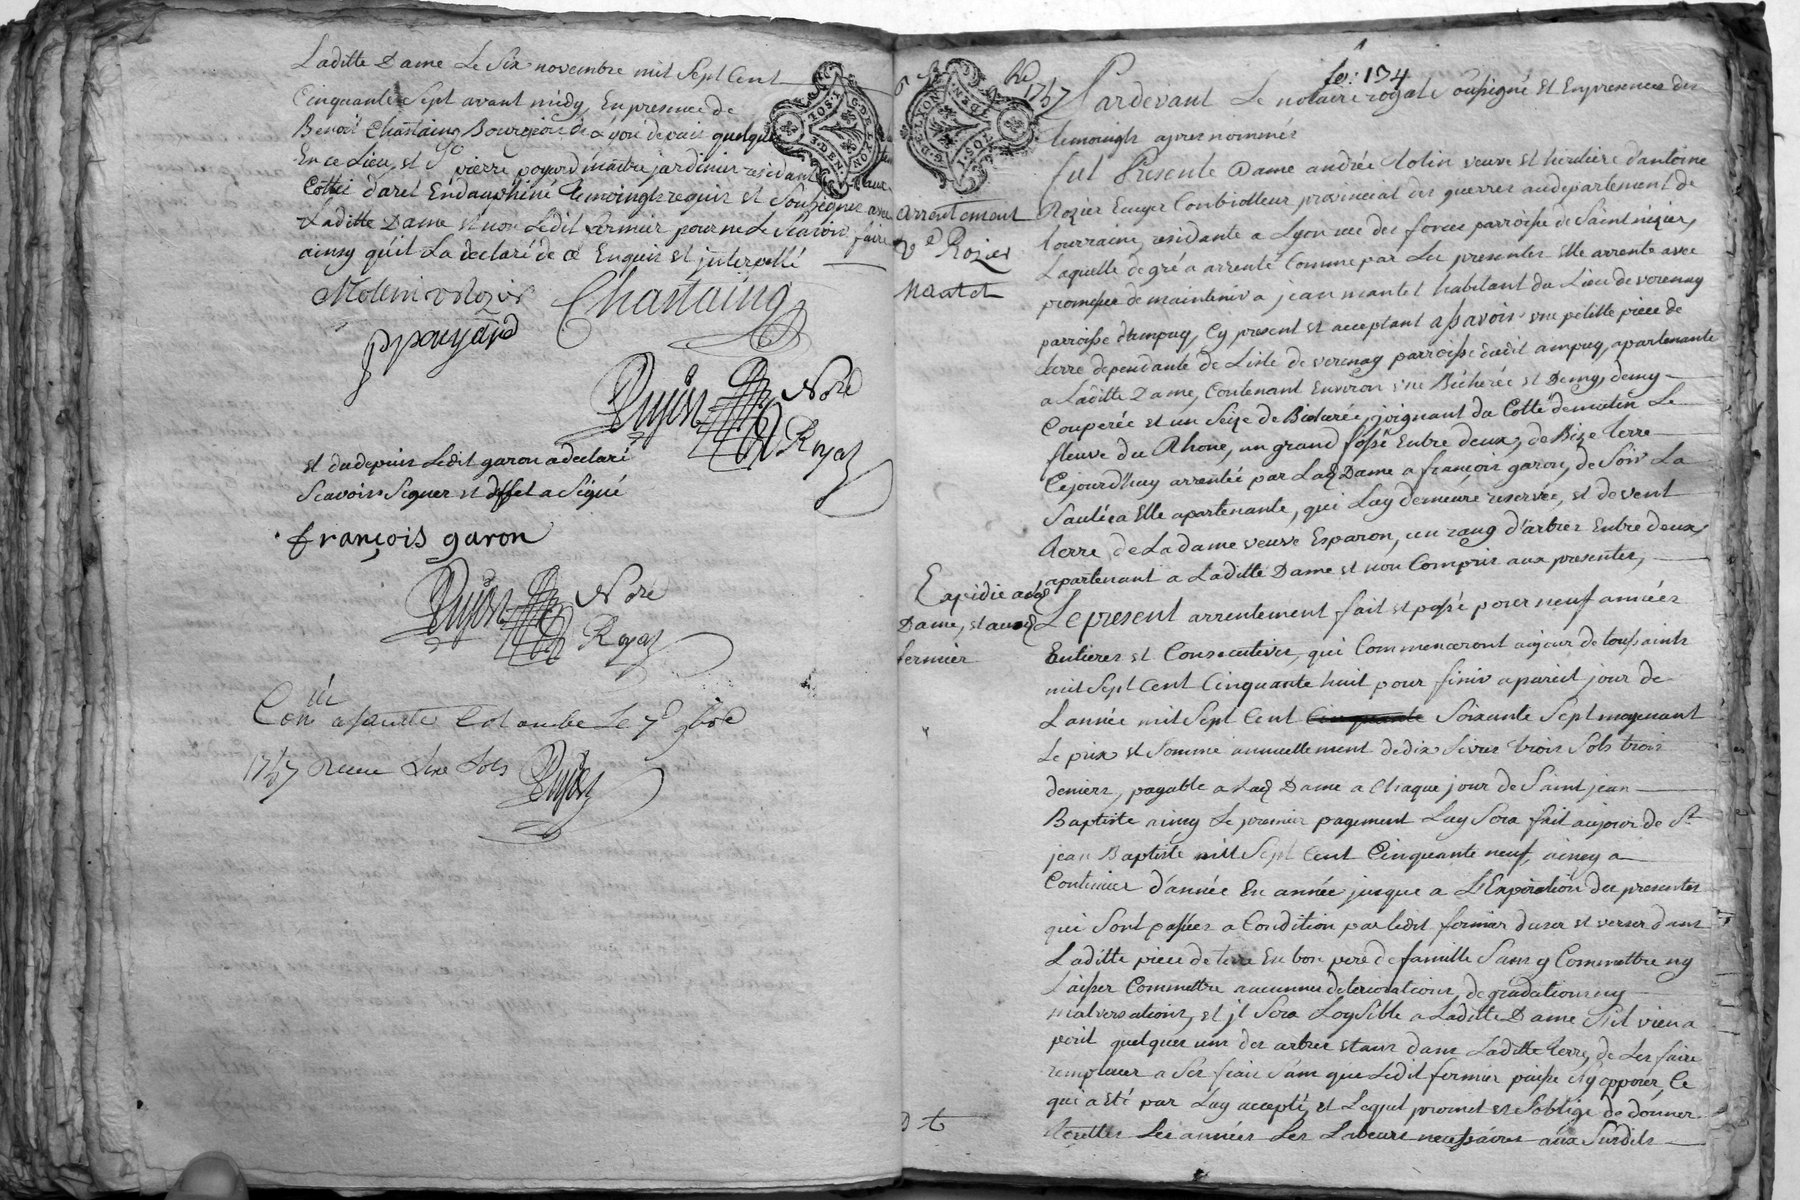 Laditte Dame Le Six novembre mil Sept Cent
Cinquante Sept avant midy, En presence de
Benoit Chastaing Bourgeois de Lyon de vais quelque
En ce Lieu, et Sr pierre poyard maitre jardinier residant
Cotté d'arel En dauphiné temoingts requis et Soussignes avec
Laditte Dame et non Ledit fermier pour ne Le Scavoir faire
ainsy qu'il La declaré de ce Enquis et interpellé
Molin v Rozier Chastaing
ppouyard
Dujon Nore
Royal
et du depuis Ledit garon a declaré
Scavoir Signer et d'effet a Signé
françois garon
Dujon Nore
Royal
Conlé a sainte Colombe le 7e 9bre
1757 Receu Six Sols Dujon
fo: 134
1757
G. DE LYON
arrentement
Ve Rozier
Mantet
Expedié a lad
Dame, et aud
fermier
Pardevant Le notaire royal Soussigné et En presence des
temoingts apres nommés
fut Presente Dame andrée Molin veuve et heritiere d'antoine
Rozier Ecuyer Controlleur provincial des guerres au departement de
tourraine, residante a Lyon rue des forces parroisse de Saint nizier,
Laquelle de gré a arrenté Comme par Les presentes Elle arrente avec
promesse de maintenir a jean mantet habitant du Lieu de verenay
parroisse d'ampuy, Cy present et acceptant asavoir une petitte piece de
terre dependante de L'isle de verenay parroisse dudit ampuy, apartenante
a Laditte Dame, Contenant Environ une Bicherée et Demy, demy
Couperée et un Seize de Bicherée, joignant du Cotté de matin Le
fleuve du Rhone, un grand fossé Entre deux, de Bize terre
Cejourd'huy arrentée par Lad Dame a françois garon, de Soir La
Saulée a Elle apartenante, qui Luy demeure reservée, et de vent
terre de La dame veuve Esparon, un rang d'arbres Entre deux,
apartenant a Laditte Dame et non Compris aux presentes,
Le present arrentement fait et passé pour neuf années
Entieres et Consecutives, qui Commenceront au jour de toussaints
mil Sept Cent Cinquante huit pour finir a pareil jour de
L'année mil Sept Cent Cinquante Soixante Sept moyenant
Le prix et Somme annuellement de dix Livres trois Sols trois
deniers, payable a Lad Dame a Chaque jour de Saint jean
Baptiste ainsy Le premier payement Luy Sera fait au jour de St
jean Baptiste mil Sept Cent Cinquante neuf, ainsy a
Continuer d'année En année jusque a L'Expiration des presentes
qui Sont passées a Condition par Ledit fermier d'user et verser dans
Laditte piece de terre En bon pere de famille Sans y Commettre ny
Laisser Commettre aucunnes deteriorations, degradations ny
malversations, et il Sera Loysible a Laditte Dame S'il vien a
perir quelques uns des arbres etans dans Laditte terre, de Les faire
remplacer a Ses frais Sans que Ledit fermier puisse S'y opposer, Ce
qui a eté par Luy accepté, et Lequel promet et S'oblige de donner
toutes Les années Les Labeurs necessaires aux Susdits